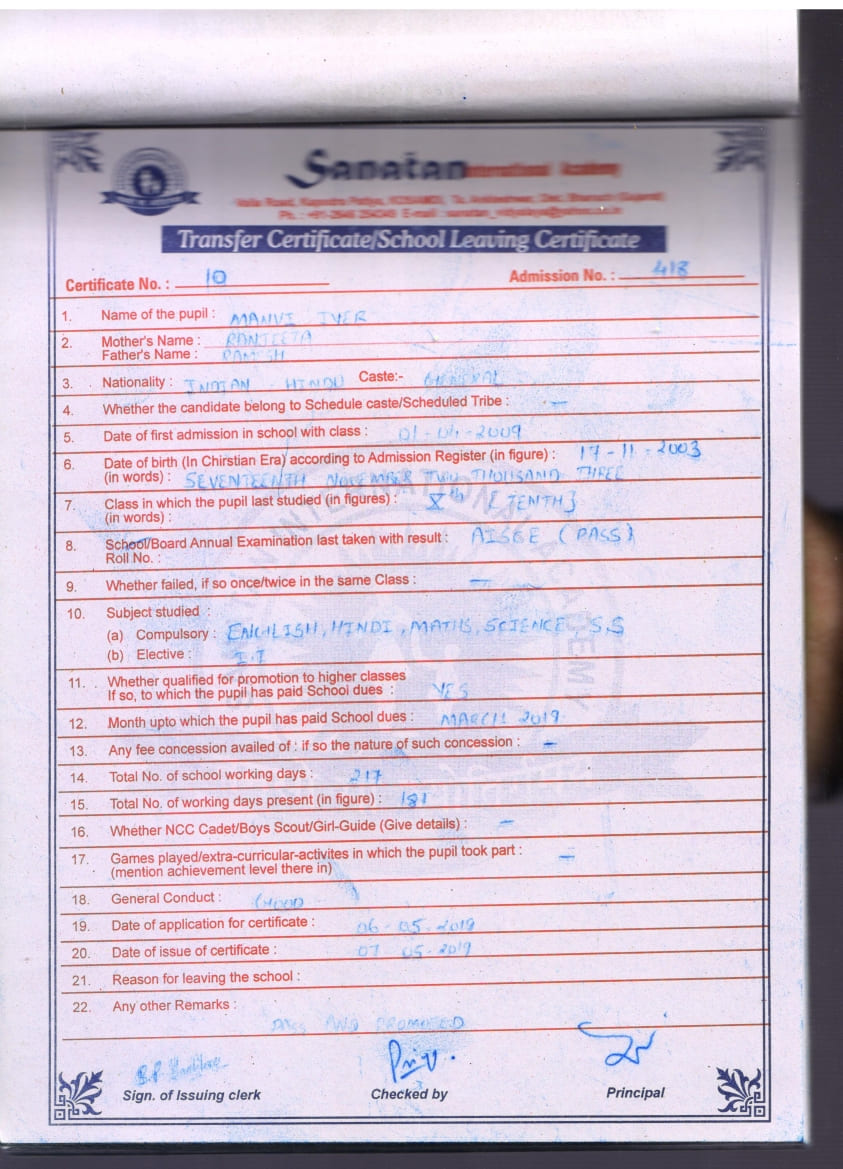 Sanatan International Academy
Valia Road, Kapodra Patiya, KOSAMDI, Ta. Ankleshwar, Dist. Bharuch (Gujarat)
Transfer Certificate/School Leaving Certificate
Certificate No. : 10 Admission No. : 418
1. Name of the pupil : MANVI IYER
2. Mother's Name : RANJEETA
Father's Name : RAMESH
3. Nationality : INDIAN - HINDU Caste:- GENERAL
4. Whether the candidate belong to Schedule caste/Scheduled Tribe : —
5. Date of first admission in school with class : 01-04-2009
6. Date of birth (In Chirstian Era) according to Admission Register (in figure) : 17-11-2003
(in words) : SEVENTEENTH NOVEMBER TWO THOUSAND THREE
7. Class in which the pupil last studied (in figures) : Xth [TENTH}
(in words) :
8. School/Board Annual Examination last taken with result : AISSE (PASS)
Roll No. :
9. Whether failed, if so once/twice in the same Class : —
10. Subject studied :
(a) Compulsory : ENGLISH, HINDI, MATHS, SCIENCE, S.S
(b) Elective : I.T
11. Whether qualified for promotion to higher classes
If so, to which the pupil has paid School dues : YES
12. Month upto which the pupil has paid School dues : MARCH 2019
13. Any fee concession availed of : if so the nature of such concession : —
14. Total No. of school working days : 217
15. Total No. of working days present (in figure) : 181
16. Whether NCC Cadet/Boys Scout/Girl-Guide (Give details) : —
17. Games played/extra-curricular-activites in which the pupil took part : —
(mention achievement level there in)
18. General Conduct : GOOD
19. Date of application for certificate : 06-05-2019
20. Date of issue of certificate : 07-05-2019
21. Reason for leaving the school :
22. Any other Remarks :
PASS AND PROMOTED
Sign. of Issuing clerk Checked by Principal